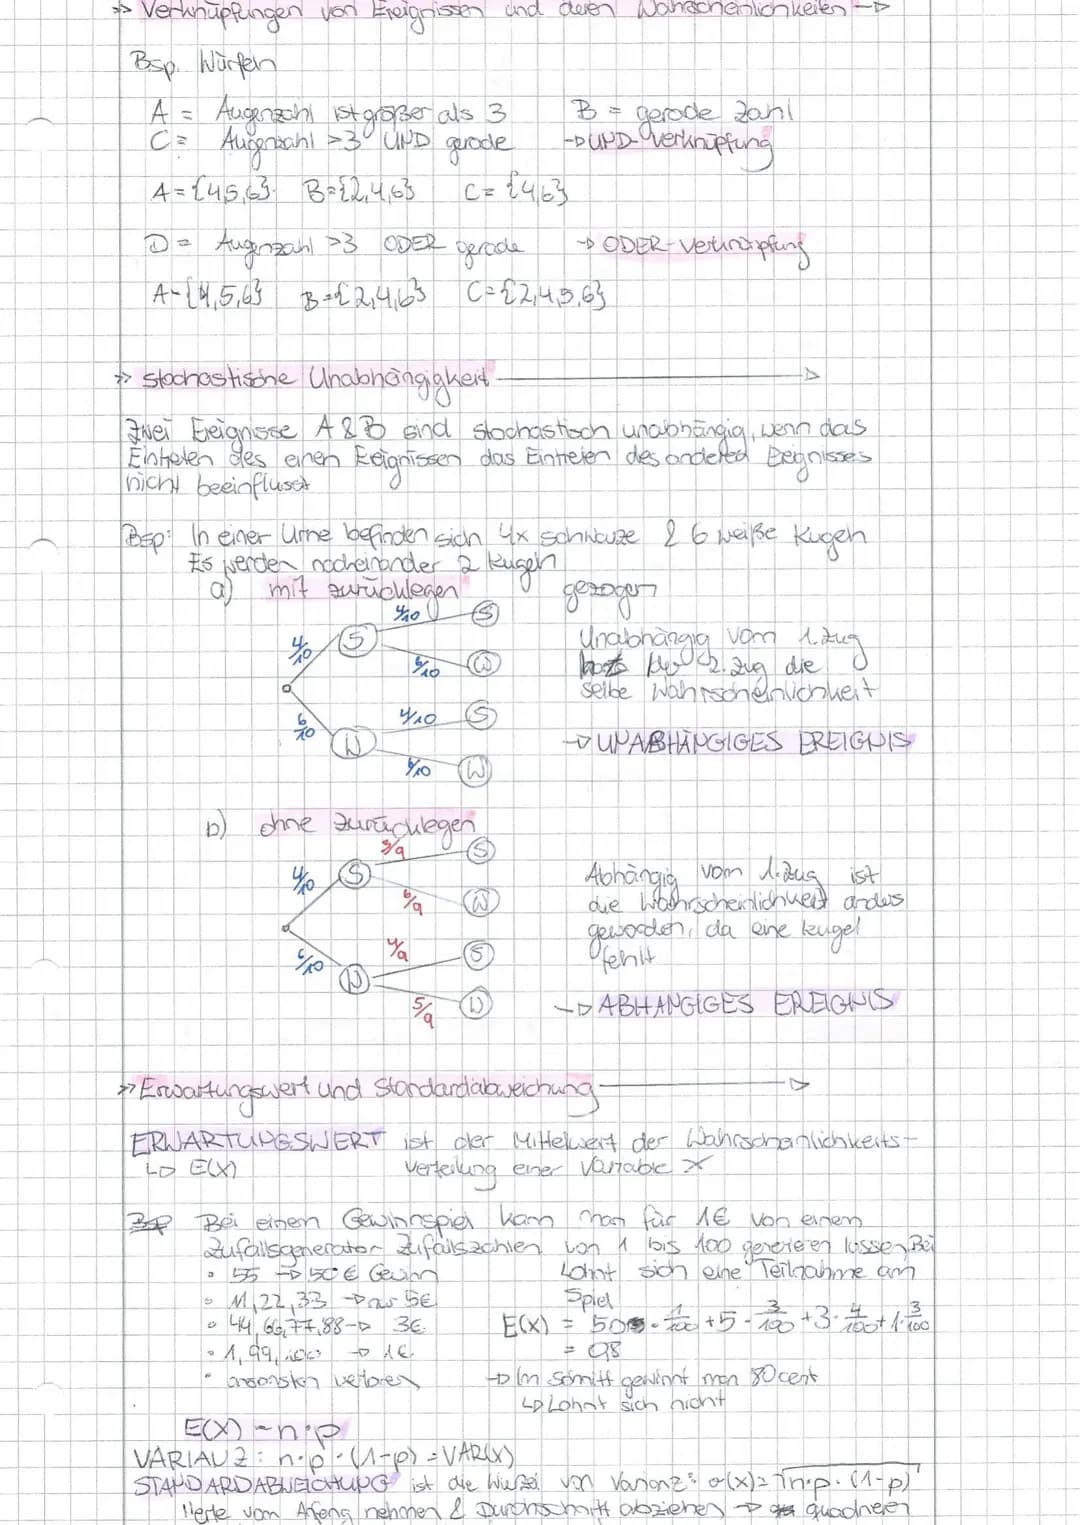 >> Verknüpfungen von Ereignissen und deren Wahrscheinlichkeiten
Bsp. Würfeln
A = Augenzahl ist größer als 3 B = gerade Zahl
C = Augenzahl >3 UND gerade → UND-Verknüpfung
A = {4,5,6} B = {2,4,6} C = {4,6}
D = Augenzahl >3 ODER gerade → ODER-Verknüpfung
A = {4,5,6} B = {2,4,6} C = {2,4,5,6}
>> stochastische Unabhängigkeit
Zwei Ereignisse A & B sind stochastisch unabhängig, wenn das
Eintreten des einen Ereignissen das Eintreten des anderen Ereignisses
nicht beeinflusst
Bsp: In einer Urne befinden sich 4x schwarze & 6 weiße Kugeln
Es werden nacheinander 2 Kugeln gezogen
a) mit zurücklegen
4/10 S 4/10 S
6/10 W
6/10 W 4/10 S
6/10 W
Unabhängig vom 1. Zug
hat der 2. Zug die
selbe Wahrscheinlichkeit
→ UNABHÄNGIGES EREIGNIS
b) ohne zurücklegen
4/10 S 3/9 S
6/9 W
6/10 W 4/9 S
5/9 W
Abhängig vom 1. Zug ist
die Wahrscheinlichkeit anders
geworden, da eine Kugel
fehlt
→ ABHÄNGIGES EREIGNIS
>> Erwartungswert und Standardabweichung
ERWARTUNGSWERT ist der Mittelwert der Wahrscheinlichkeits-
↳ E(X) verteilung einer Variable X
Bsp Bei einem Gewinnspiel kann man für 1€ von einem
Zufallsgenerator Zufallszahlen von 1 bis 100 generieren lassen. Bei
• 55 → 50€ Gewinn
• 11, 22, 33 → 5€
• 44, 66, 77, 88 → 3€
• 1, 99, 100 → 1€
• ansonsten verloren
Lohnt sich eine Teilnahme am
Spiel
E(X) = 50 · 1/100 + 5 · 3/100 + 3 · 4/100 + 1 · 3/100
= 0,8
→ Im Schnitt gewinnt man 80 cent
↳ Lohnt sich nicht
E(X) = n·p
VARIANZ: n·p·(1-p) = VAR(X)
STANDARDABWEICHUNG ist die Wurzel von Varianz: σ(x) = √n·p·(1-p)
Werte vom Anfang nehmen & Durchschnitt abziehen → quadrieren